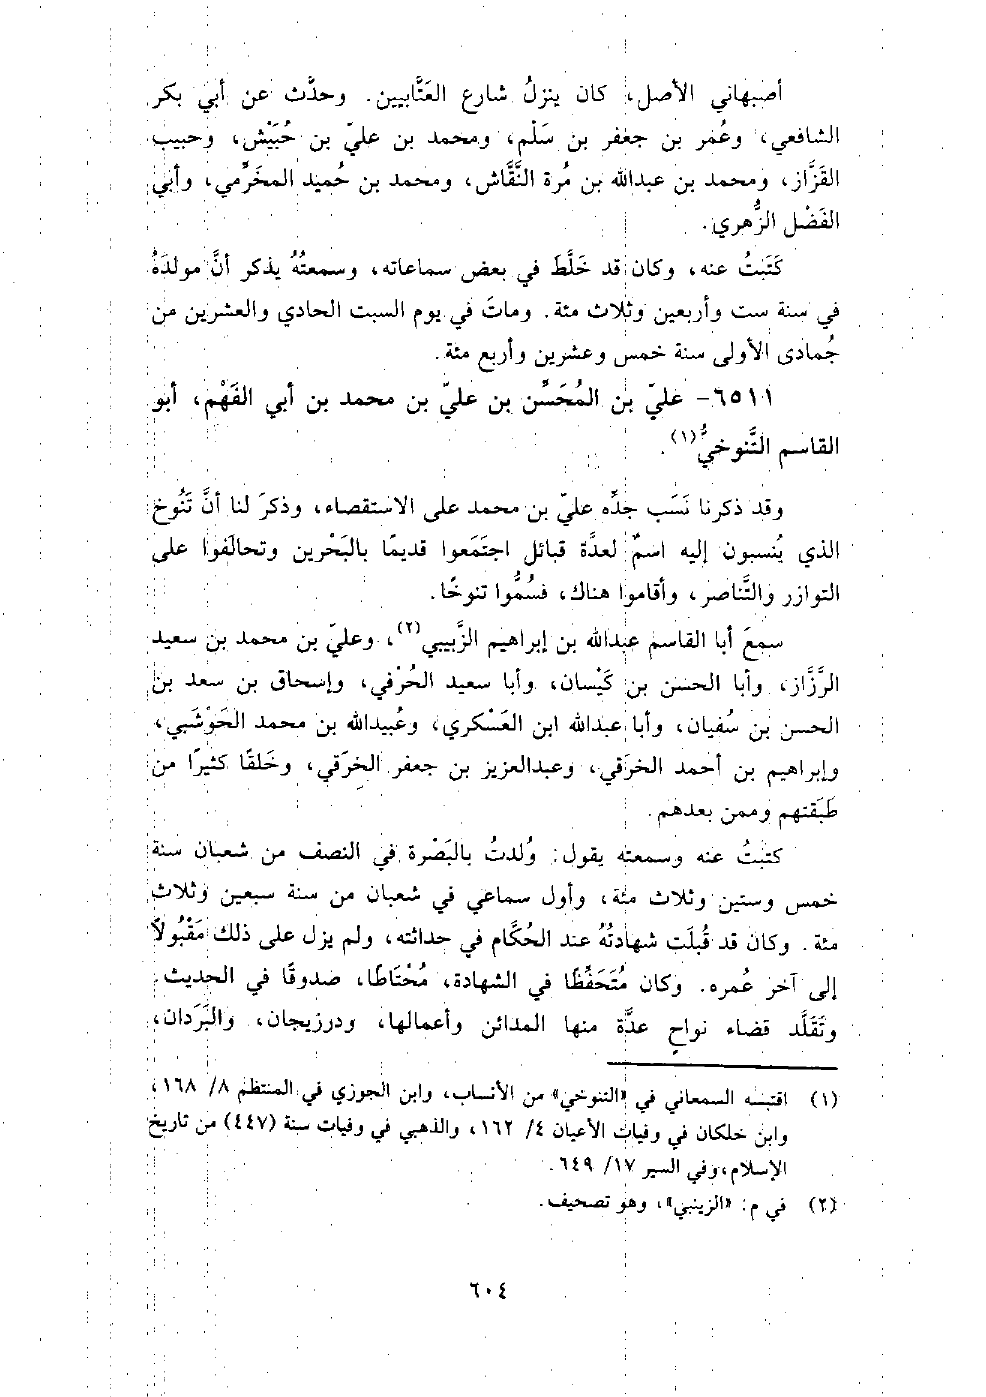 أصبهاني الأصل، كان ينزلُ شارع العَتَّابيين. وحدَّث عن أبي بكر
الشافعي، وعُمر بن جعفر بن سَلْم، ومحمد بن عليّ بن حُبَيْش، وحبيب
القَزَّاز، ومحمد بن عبدالله بن مُرة النَّقَّاش، ومحمد بن حُميد المخَرِّمي، وأبي
الفَضْل الزُّهري.
كَتَبتُ عنه، وكان قد خَلَّطَ في بعض سماعاته، وسمعتُهُ يذكر أنَّ مولدَهُ
في سنة ست وأربعين وثلاث مئة. وماتَ في يوم السبت الحادي والعشرين من
جُمادى الأولى سنة خمس وعشرين وأربع مئة.
٦٥١١- عليّ بن المُحَسِّن بن عليّ بن محمد بن أبي الفَهْم، أبو
القاسم التَّنوخيُّ(١).
وقد ذكرنا نَسَب جدِّه عليّ بن محمد على الاستقصاء، وذكرَ لنا أنَّ تَنُوخ
الذي يُنسبون إليه اسمٌ لعدَّة قبائل اجتَمَعوا قديمًا بالبَحْرين وتحالَفوا على
التوازر والتَّناصر، وأقاموا هناك، فسُمُّوا تنوخًا.
سمعَ أبا القاسم عبدالله بن إبراهيم الزَّبيبي(٢)، وعليّ بن محمد بن سعيد
الرَّزَّاز، وأبا الحسن بن كَيْسان، وأبا سعيد الحُرْفي، وإسحاق بن سعد بن
الحسن بن سُفيان، وأبا عبدالله ابن العَسْكري، وعُبيدالله بن محمد الحَوْشَبي،
وإبراهيم بن أحمد الخرَقي، وعبدالعزيز بن جعفر الخرَقي، وخَلقًا كثيرًا من
طَبَقتهم وممن بعدهم.
كتبتُ عنه وسمعته يقول: وُلدتُ بالبَصْرة في النصف من شعبان سنة
خمس وستين وثلاث مئة، وأول سماعي في شعبان من سنة سبعين وثلاث
مئة. وكان قد قُبلَت شهادتُهُ عند الحُكَّام في حداثته، ولم يزل على ذلك مَقْبُولاً
إلى آخر عُمره. وكان مُتَحَفِّظًا في الشهادة، مُحْتَاطًا، صدوقًا في الحديث.
وتَقَلَّد قضاء نواحٍ عدَّة منها المدائن وأعمالها، ودرزيجان، والبَرَدان،
(١) اقتبسه السمعاني في «التنوخي» من الأنساب، وابن الجوزي في المنتظم ٨/ ١٦٨،
وابن خلكان في وفيات الأعيان ٤/ ١٦٢، والذهبي في وفيات سنة (٤٤٧) من تاريخ
الإسلام، وفي السير ١٧/ ٦٤٩.
(٢) في م: «الزينبي»، وهو تصحيف.
٦٠٤